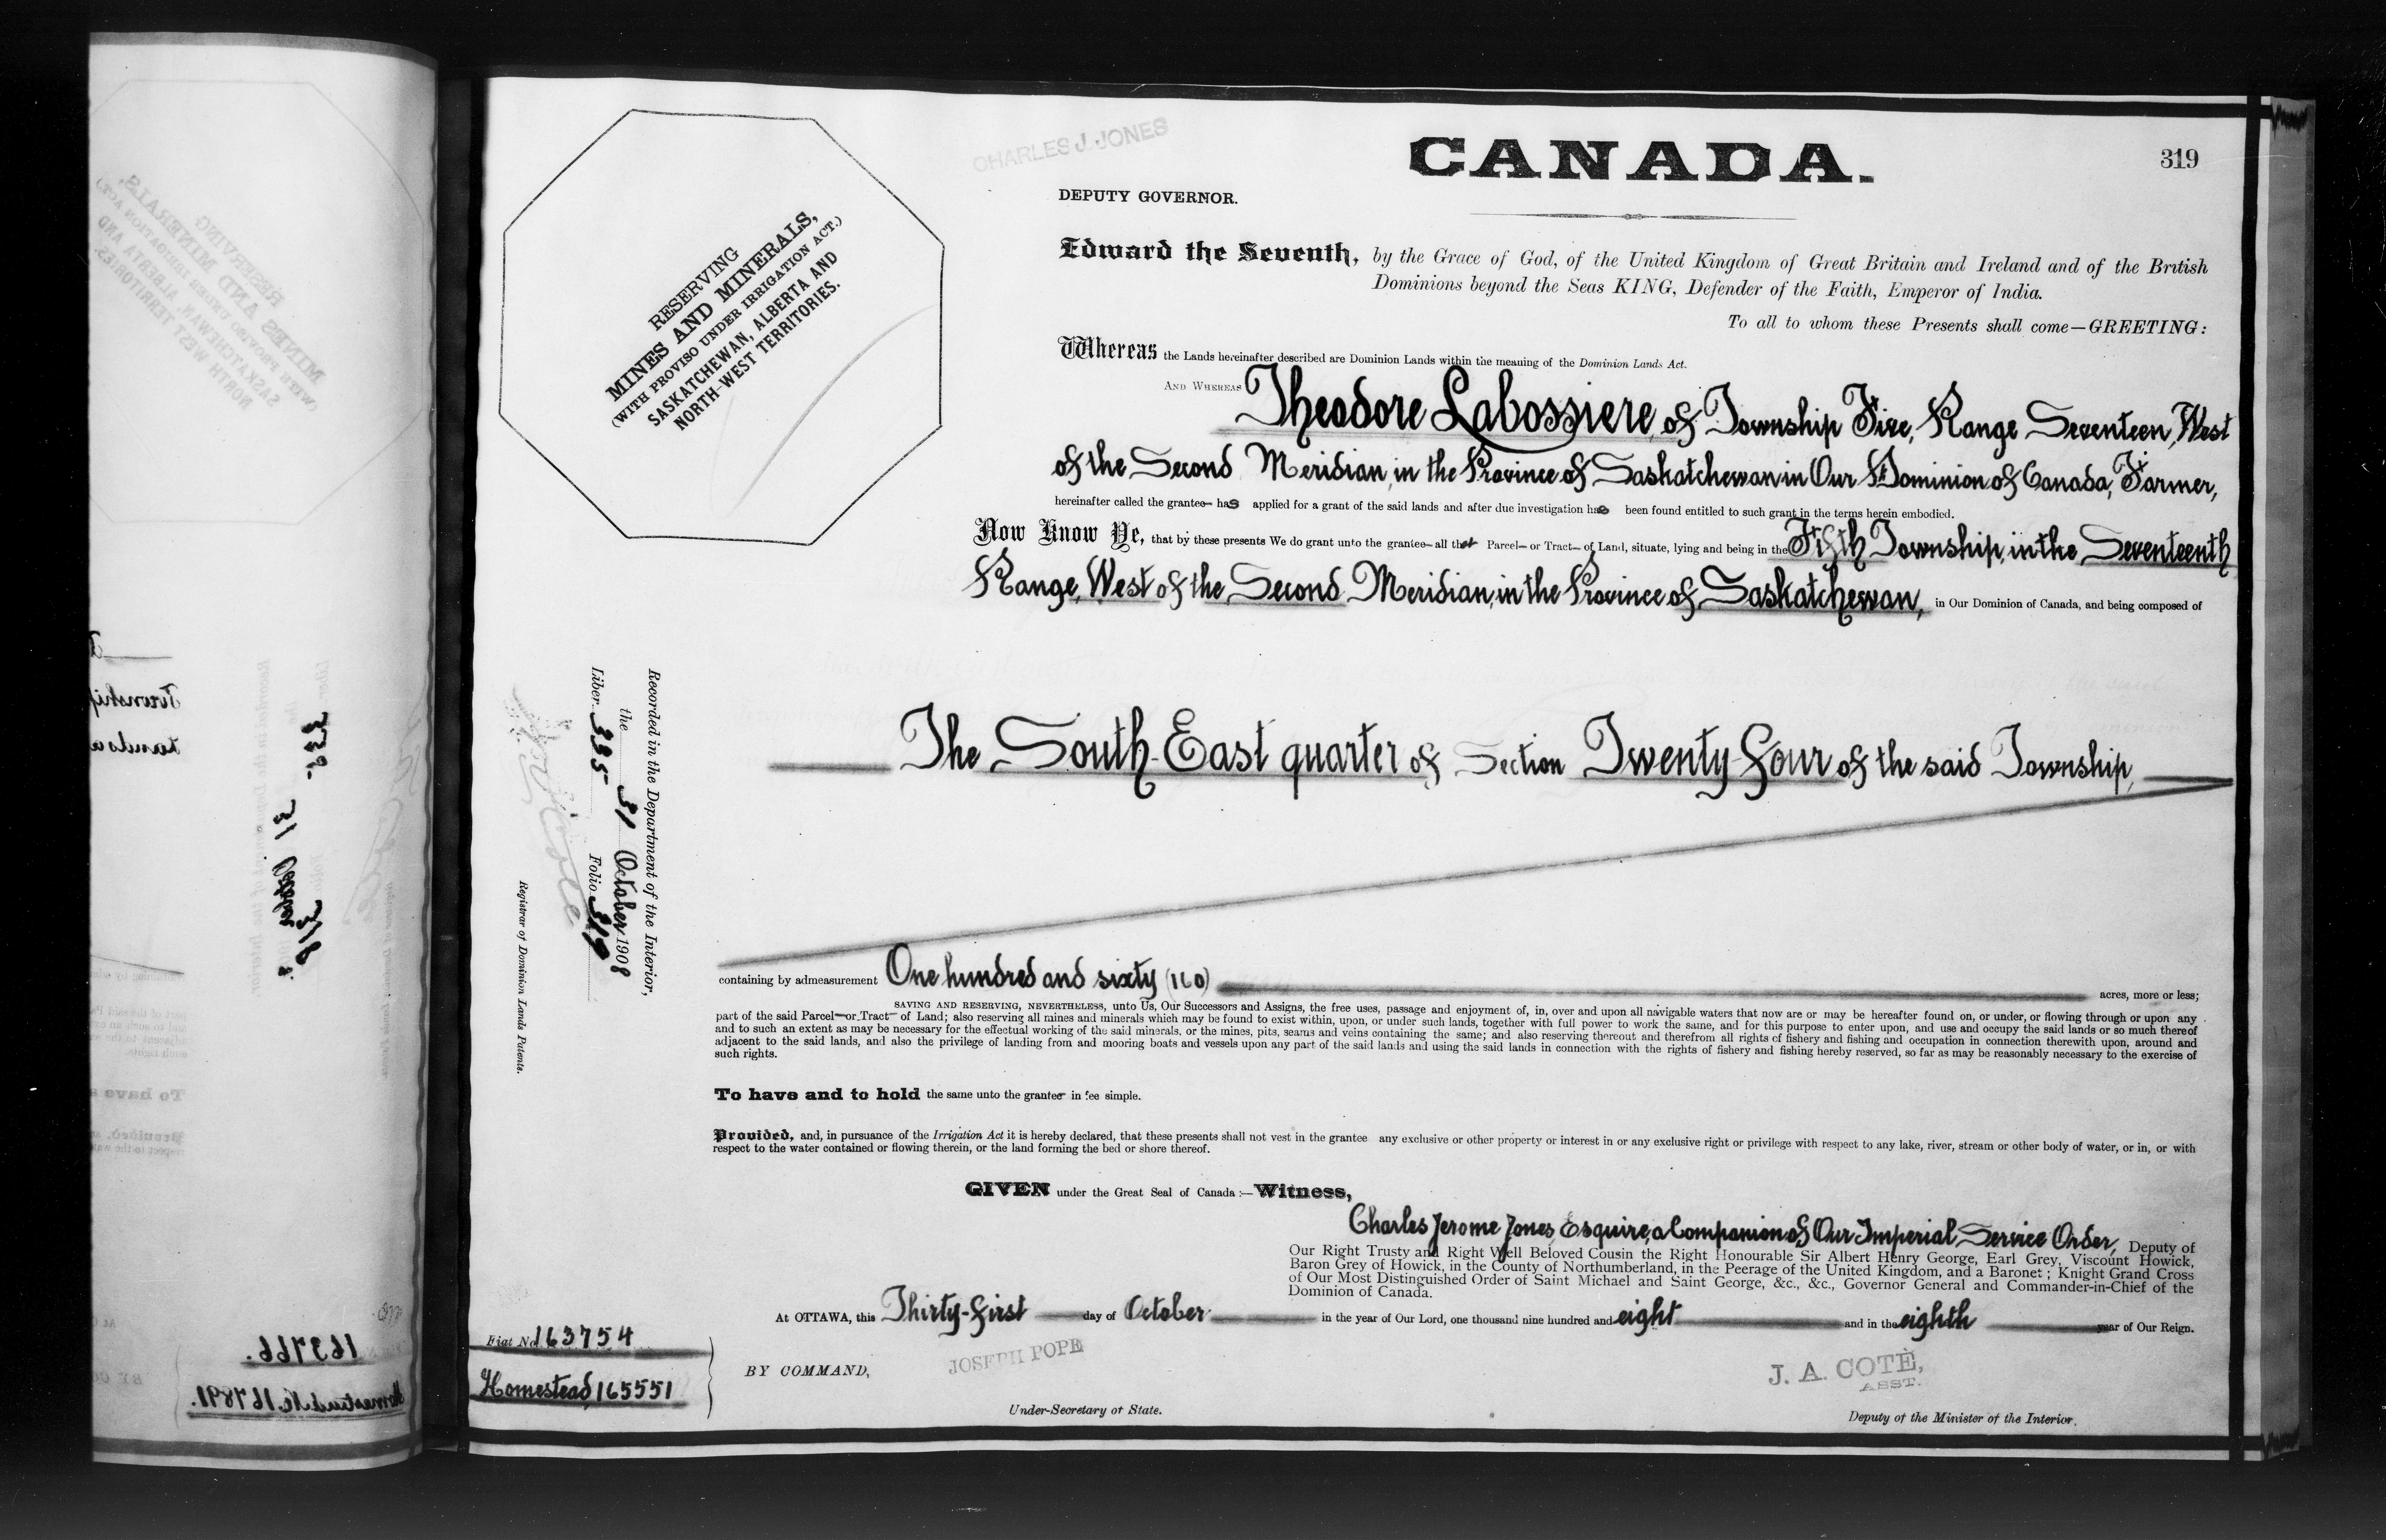 CHARLES J. JONES
CANADA.
319
DEPUTY GOVERNOR.
RESERVING
MINES AND MINERALS,
(WITH PROVISO UNDER IRRIGATION ACT.)
SASKATCHEWAN, ALBERTA AND
NORTH-WEST TERRITORIES.
Edward the Seventh, by the Grace of God, of the United Kingdom of Great Britain and Ireland and of the British
Dominions beyond the Seas KING, Defender of the Faith, Emperor of India.
To all to whom these Presents shall come—GREETING:
Whereas the Lands hereinafter described are Dominion Lands within the meaning of the Dominion Lands Act.
AND WHEREAS Theodore Labossiere, of Township Five, Range Seventeen, West
of the Second Meridian, in the Province of Saskatchewan in Our Dominion of Canada, Farmer,
hereinafter called the grantee has applied for a grant of the said lands and after due investigation has been found entitled to such grant in the terms herein embodied.
Now Know Ye, that by these presents We do grant unto the grantee all that Parcel or Tract of Land, situate, lying and being in the Fifth Township, in the Seventeenth
Range, West of the Second Meridian, in the Province of Saskatchewan, in Our Dominion of Canada, and being composed of
Recorded in the Department of the Interior,
the 31 October 1908
Liber 335 Folio 319
Registrar of Dominion Lands Patents.
The South-East quarter of Section Twenty-four of the said Township,
containing by admeasurement One hundred and sixty (160) acres, more or less;
SAVING AND RESERVING, NEVERTHELESS, unto Us, Our Successors and Assigns, the free uses, passage and enjoyment of, in, over and upon all navigable waters that now are or may be hereafter found on, or under, or flowing through or upon any
part of the said Parcel or Tract of Land; also reserving all mines and minerals which may be found to exist within, upon, or under such lands, together with full power to work the same, and for this purpose to enter upon, and use and occupy the said lands or so much thereof
and to such an extent as may be necessary for the effectual working of the said minerals, or the mines, pits, seams and veins containing the same; and also reserving thereout and therefrom all rights of fishery and fishing and occupation in connection therewith upon, around and
adjacent to the said lands, and also the privilege of landing from and mooring boats and vessels upon any part of the said lands and using the said lands in connection with the rights of fishery and fishing hereby reserved, so far as may be reasonably necessary to the exercise of
such rights.
To have and to hold the same unto the grantee in fee simple.
Provided, and, in pursuance of the Irrigation Act it is hereby declared, that these presents shall not vest in the grantee any exclusive or other property or interest in or any exclusive right or privilege with respect to any lake, river, stream or other body of water, or in, or with
respect to the water contained or flowing therein, or the land forming the bed or shore thereof.
GIVEN under the Great Seal of Canada:—Witness,
Charles Jerome Jones, Esquire, a Companion of Our Imperial Service Order, Deputy of
Our Right Trusty and Right Well Beloved Cousin the Right Honourable Sir Albert Henry George, Earl Grey, Viscount Howick,
Baron Grey of Howick, in the County of Northumberland, in the Peerage of the United Kingdom, and a Baronet; Knight Grand Cross
of Our Most Distinguished Order of Saint Michael and Saint George, &c., &c., Governor General and Commander-in-Chief of the
Dominion of Canada.
At OTTAWA, this Thirty-first day of October in the year of Our Lord, one thousand nine hundred and eight and in the eighth year of Our Reign.
Fiat No. 163754
Homestead, 165551
BY COMMAND,
JOSEPH POPE
Under-Secretary of State.
J. A. COTÉ,
ASST.
Deputy of the Minister of the Interior.